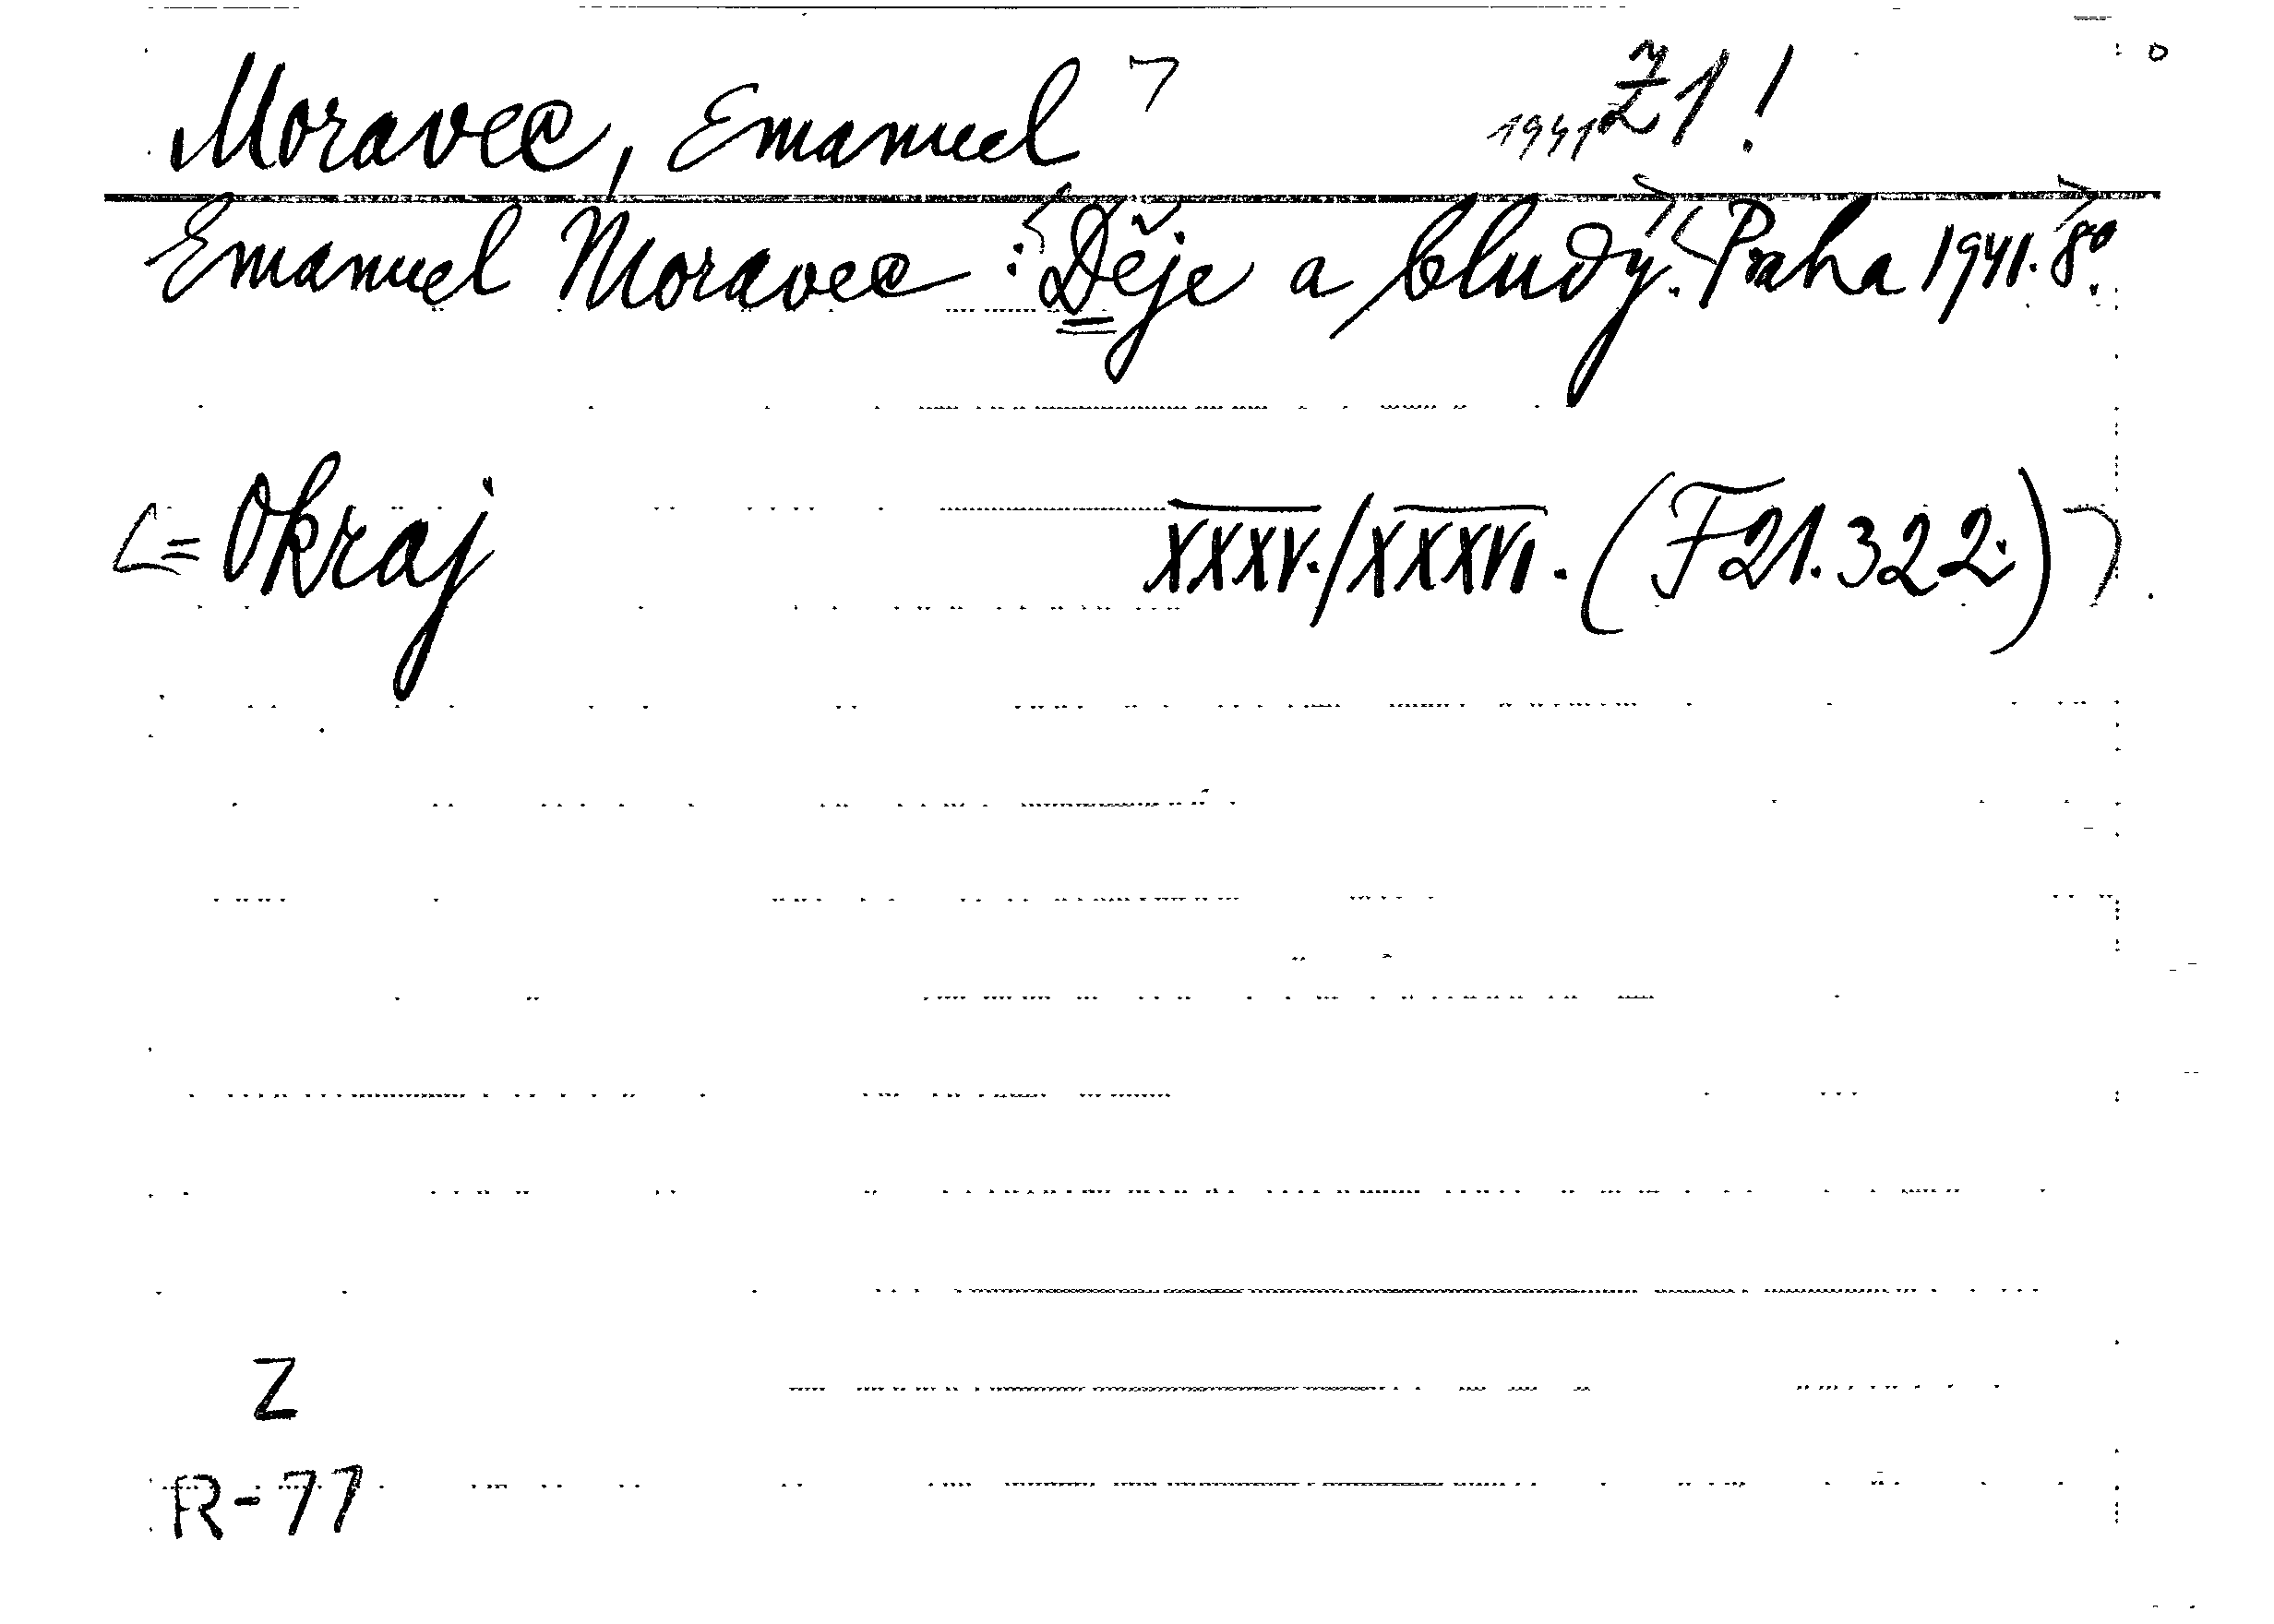 Moravec, Emanuel 1941 Z1!
Emanuel Moravec: Děje a bludy. Praha 1941. 8°.
= Okraj XXXV./XXXVI. (F21.322.)
Z
R-77